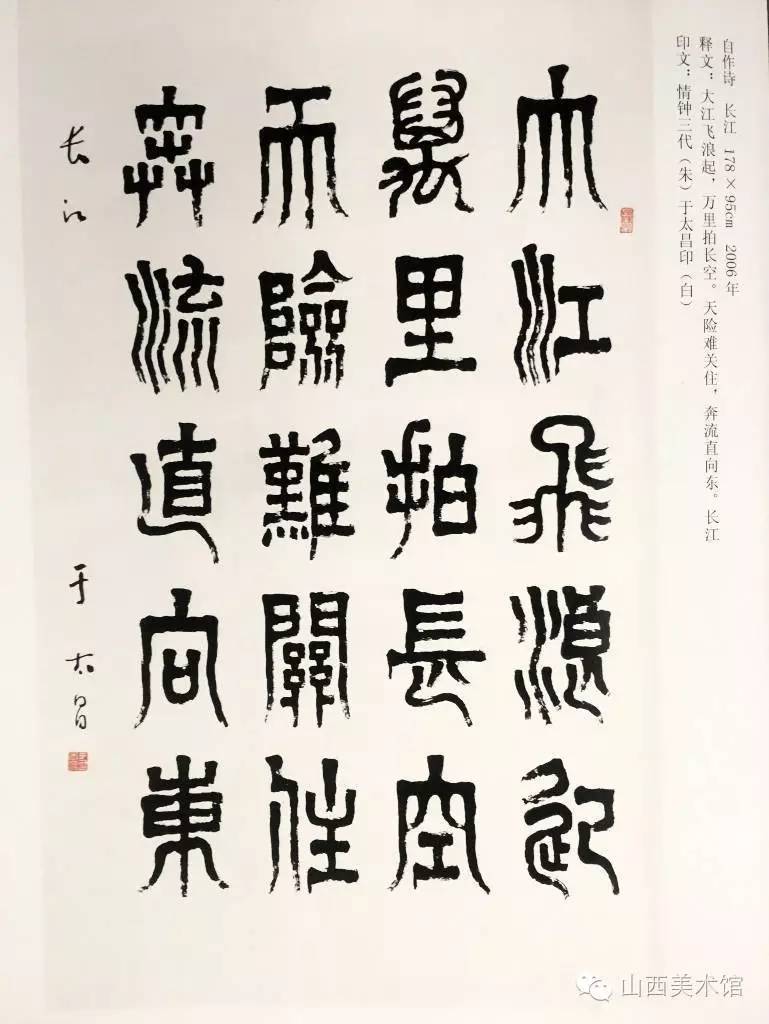 自作诗 长江 178×95cm 2006年
释文：大江飞浪起，万里拍长空。天险难关住，奔流直向东。长江
印文：情钟三代（朱）于太昌印（白）
大江飛浪起
萬里拍長空
天險難關住
奔流直向東
长江 于太昌
山西美术馆